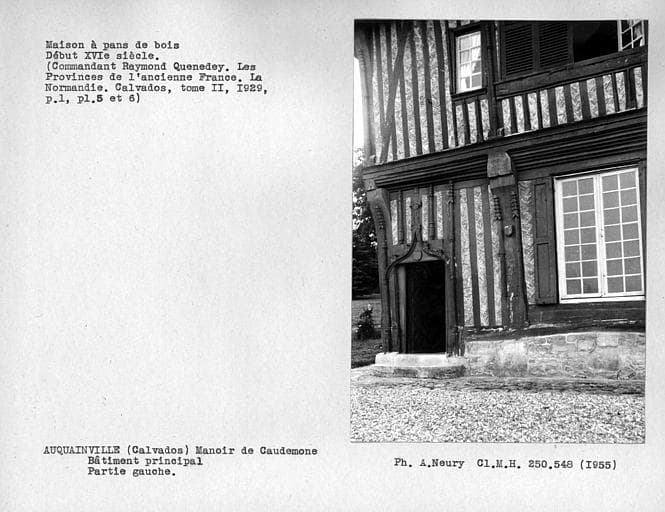 Maison à pans de bois
Début XVIe siècle.
(Commandant Raymond Quenedey. Les
Provinces de l'ancienne France. La
Normandie. Calvados, tome II, I929,
p.l, pl.5 et 6)
AUQUAINVILLE (Calvados) Manoir de Caudemone
Bâtiment principal
Partie gauche.
Ph. A.Neury Cl.M.H. 250.548 (I955)